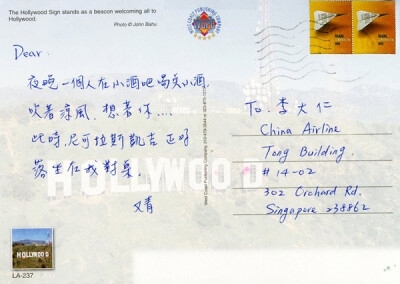 The Hollywood Sign stands as a beacon welcoming all to
Hollywood.
Photo © John Bahu
Dear:
夜晚一個人在小酒吧喝美小酒,
吹著涼風,想著你....
此時,尼可拉斯凱吉正好
落坐在我對桌。
文青
To: 李大仁
China Airline
Tong Building.
#14-02
302 Orchard Rd.
Singapore 238862
HOLLYWOOD
HOLLYWOOD
LA-237